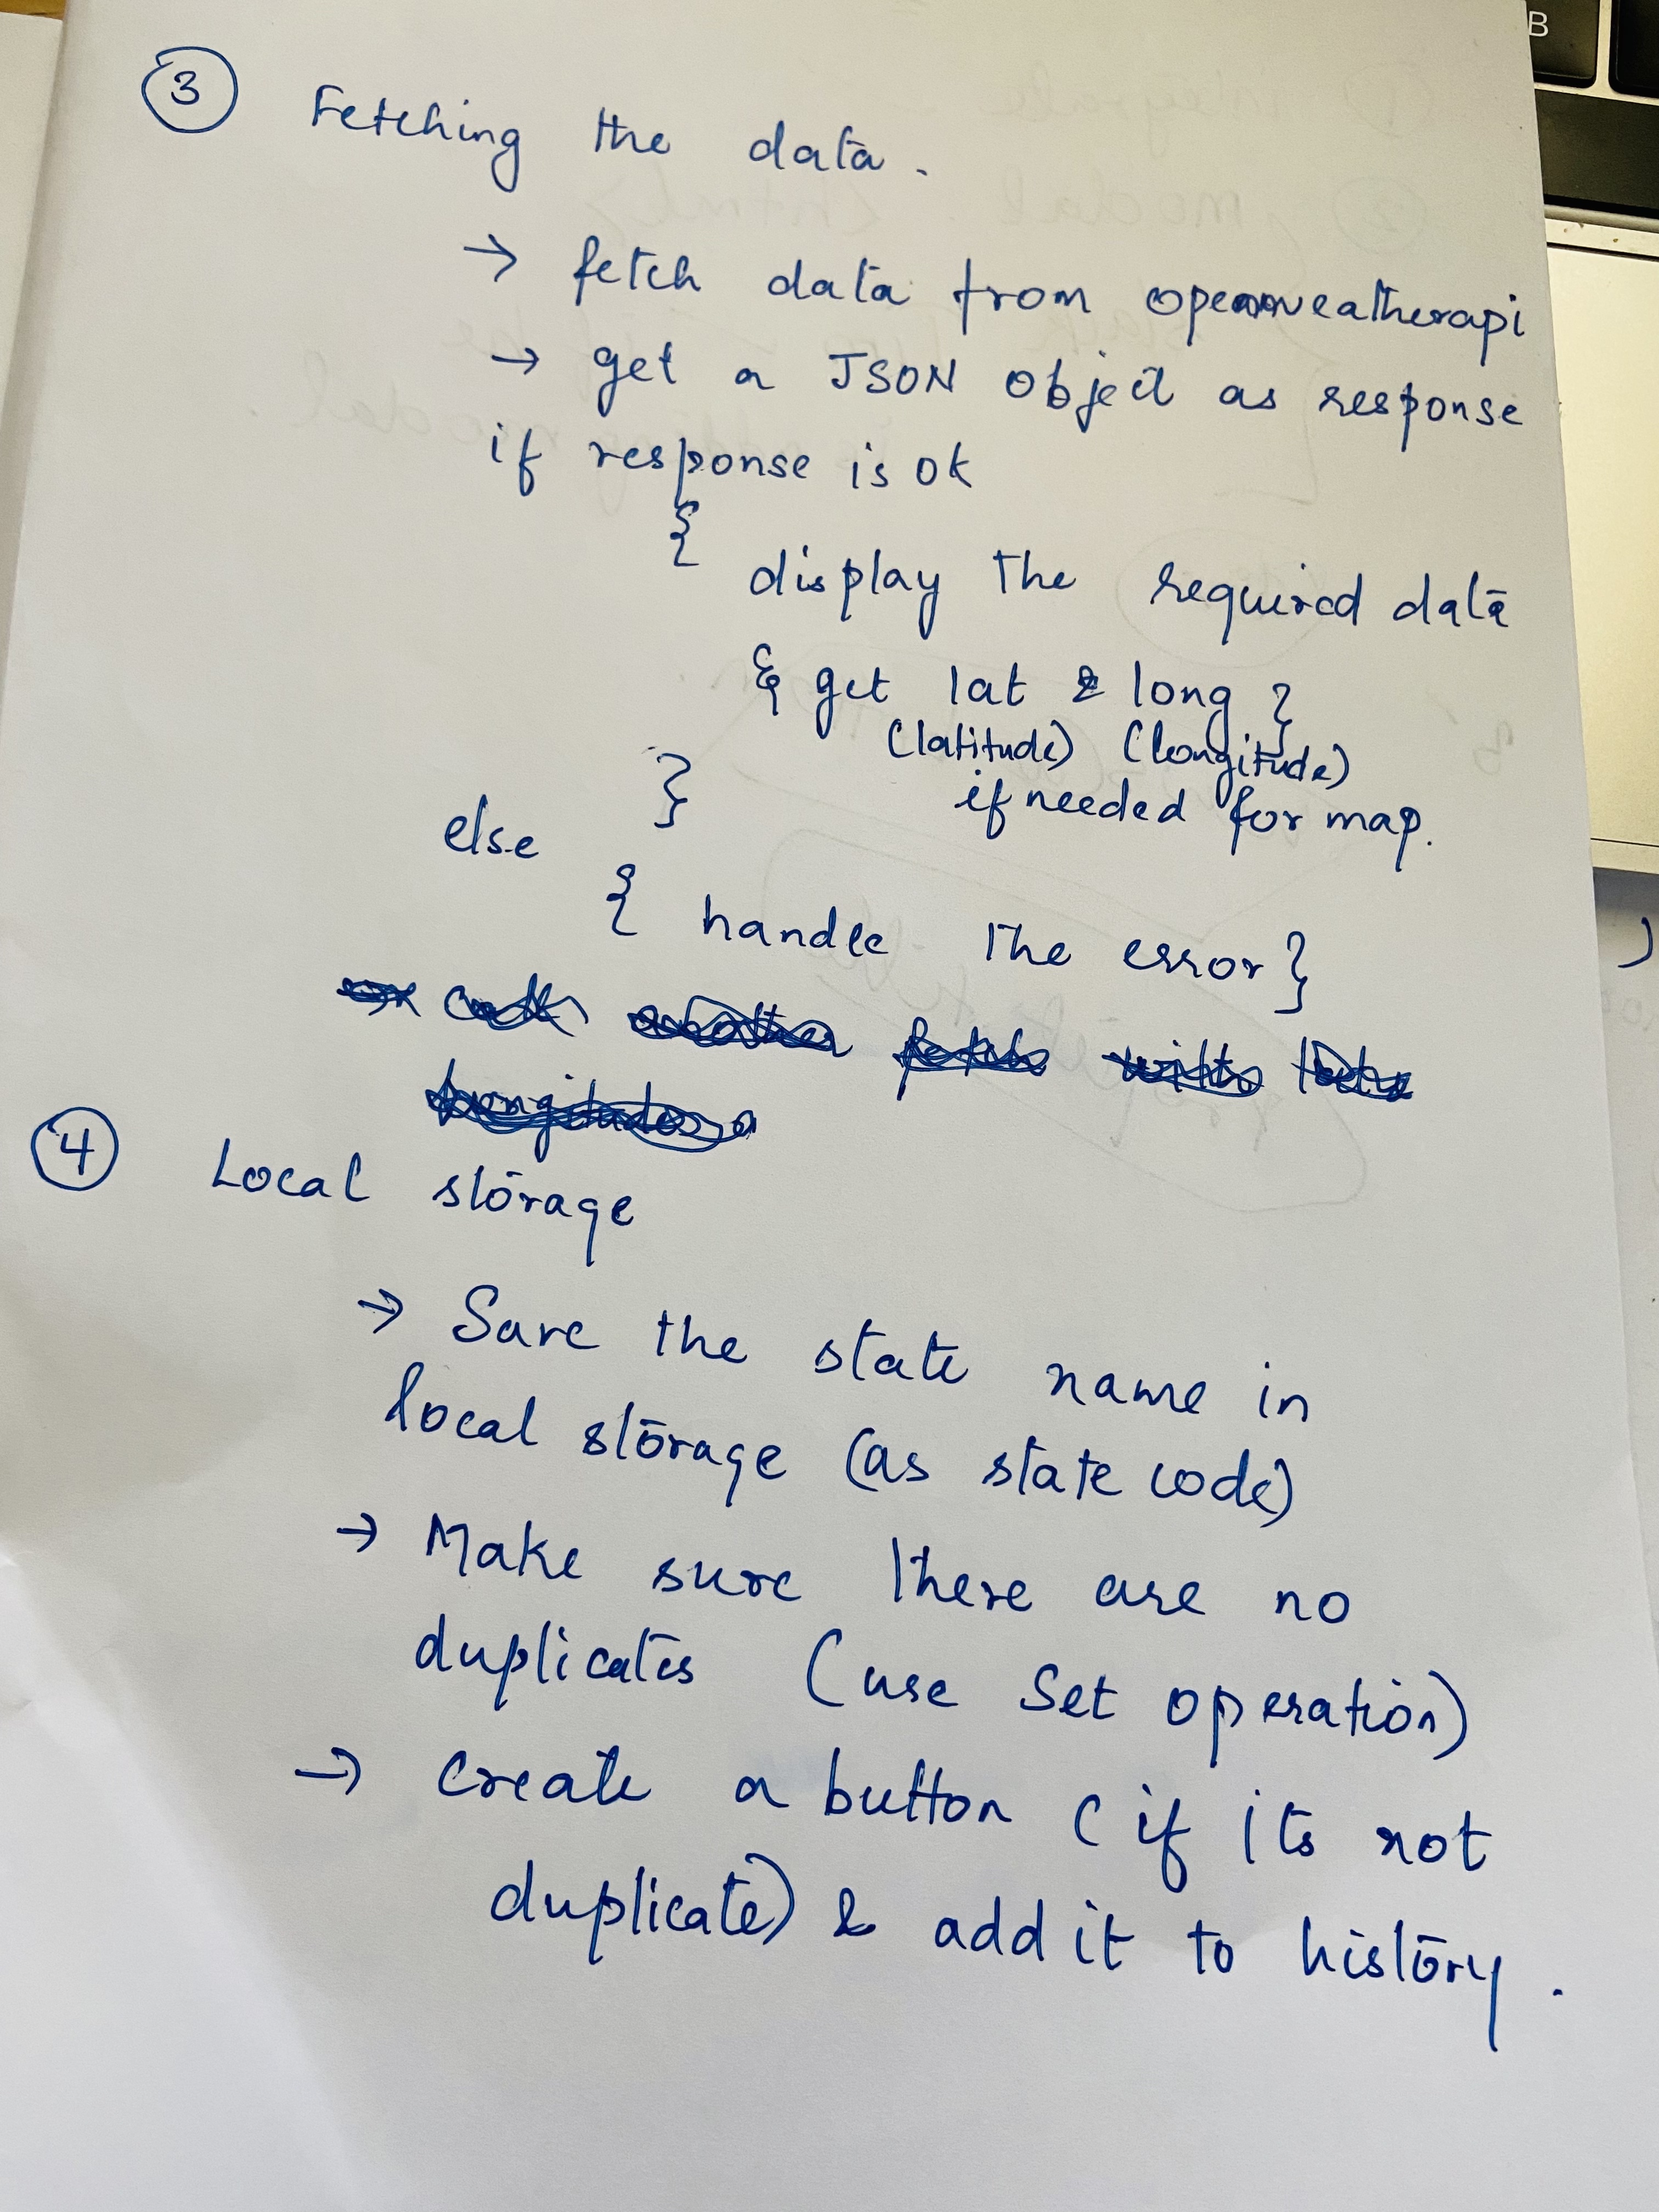 ③ Fetching the data.
→ fetch data from openweatherapi
→ get a JSON object as response
if response is ok
{
display the required data
& get lat & long }
(latitude) (longitude)
if needed for map.
}
else
{ handle the error }
④ Local storage
→ Save the state name in
local storage (as state code)
→ Make sure there are no
duplicates (use Set operation)
→ create a button (if its not
duplicate) & add it to history.
B